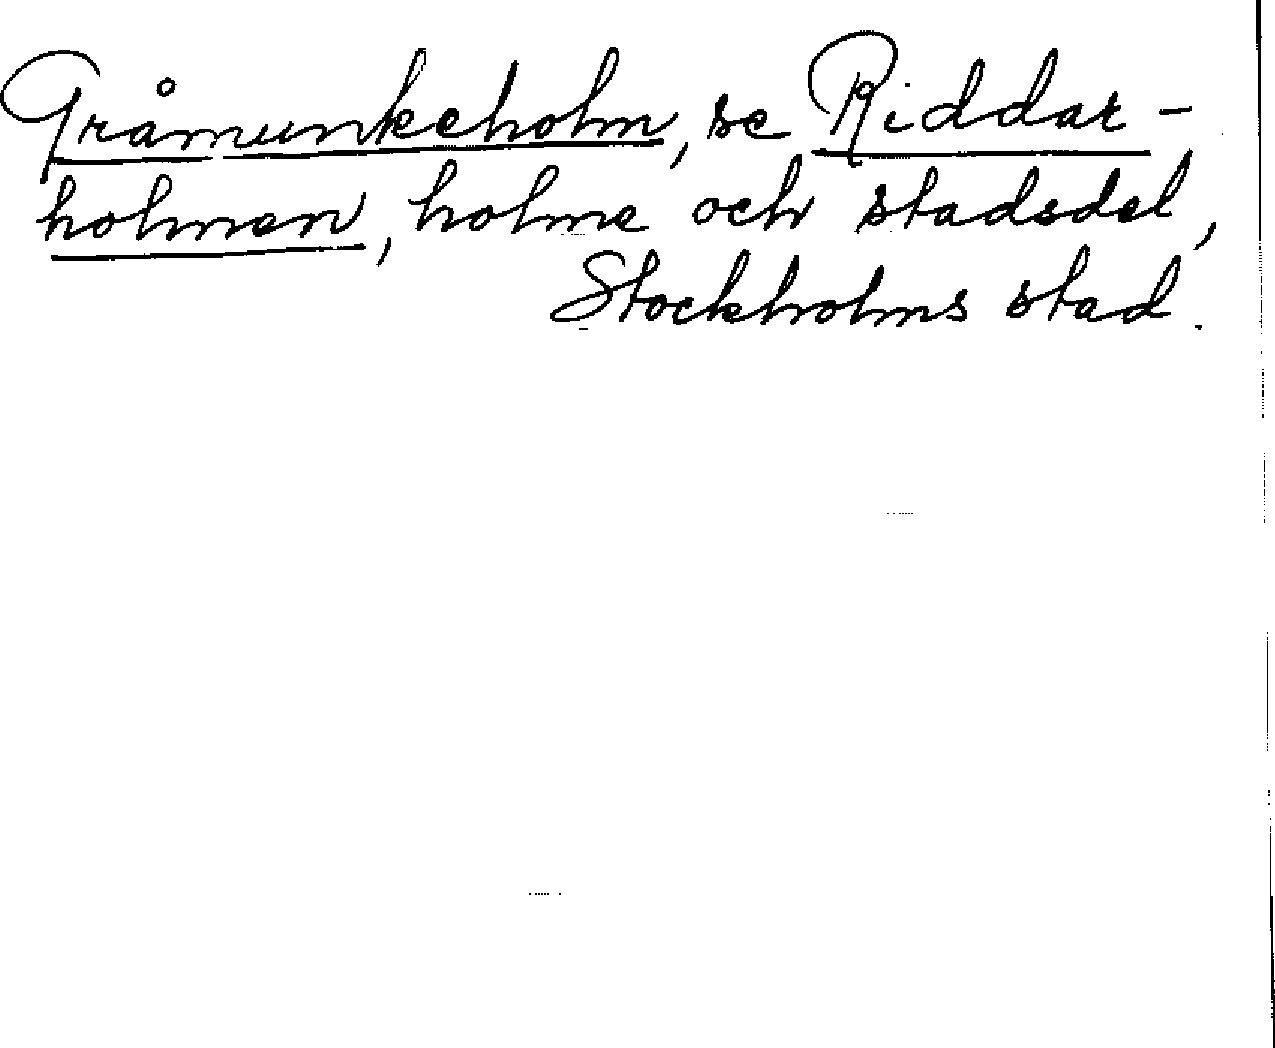 Gråmunkeholm, se Riddar-
holmen, holme och stadsdel,
Stockholms stad.